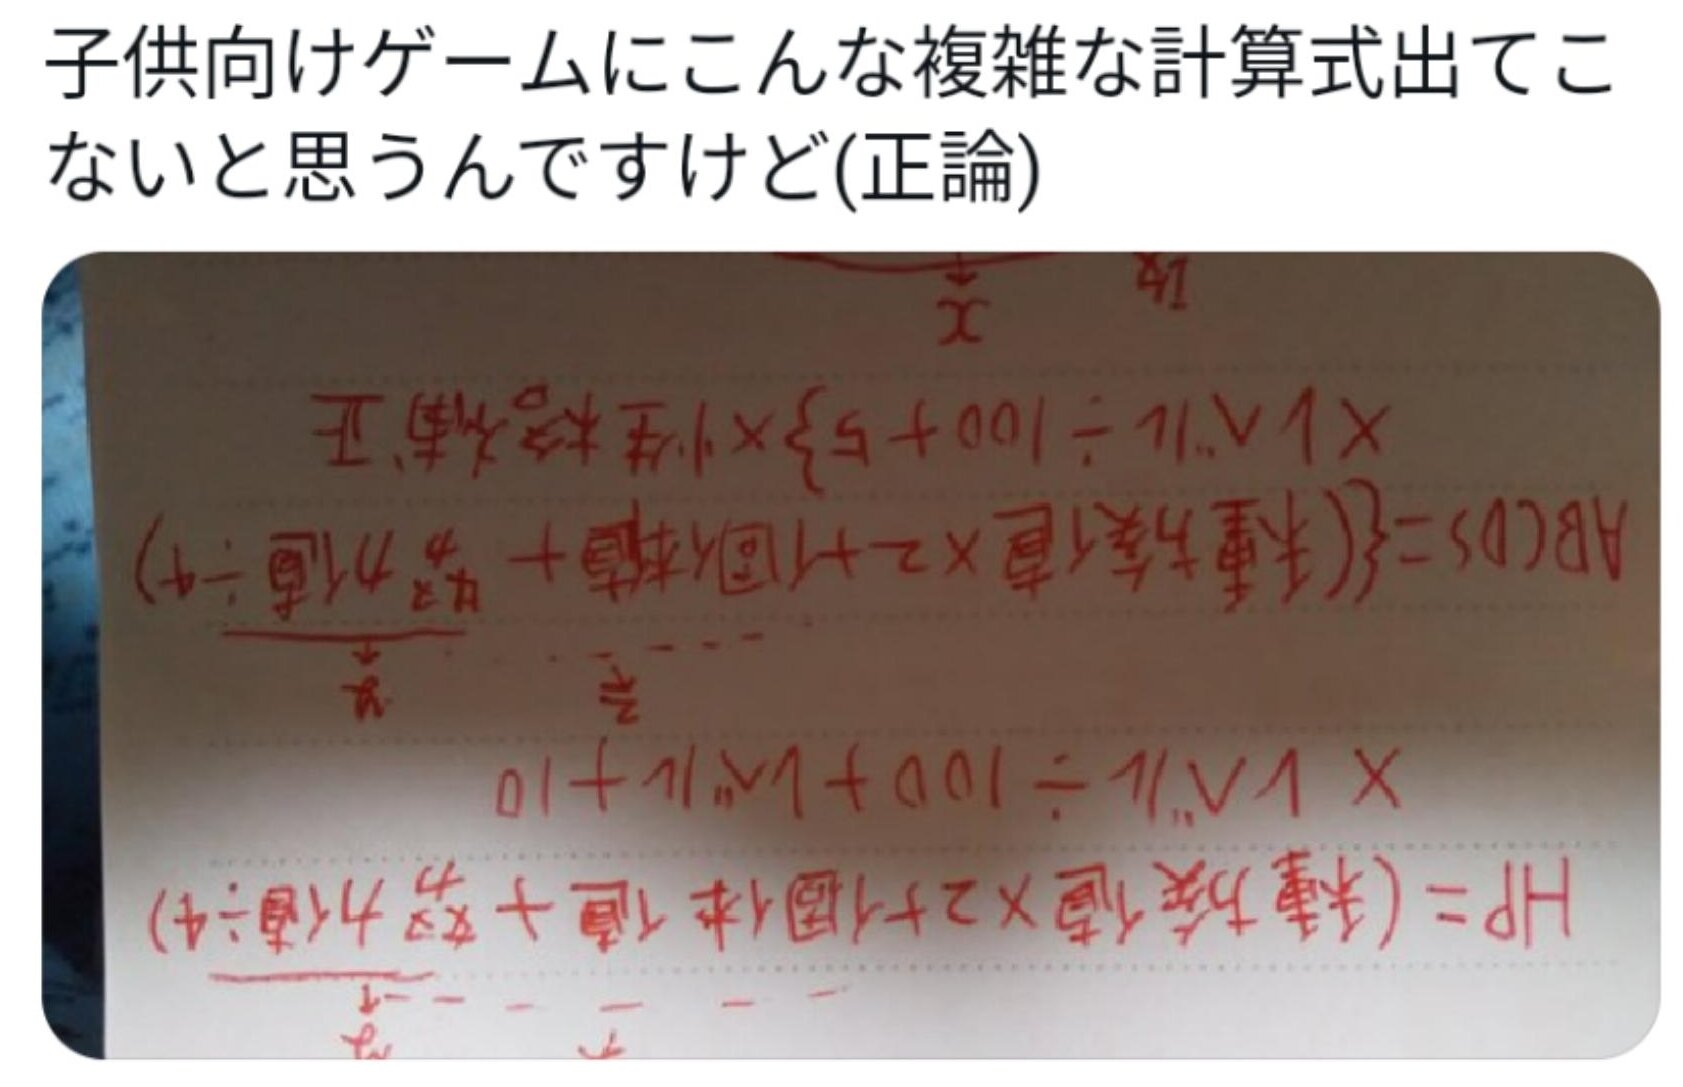 子供向けゲームにこんな複雑な計算式出てこ
ないと思うんですけど(正論)
HP=(種族値×2+個体値+努力値÷4)
×レベル÷100+レベル+10
z y
ABCDS={(種族値×2+個体値+努力値÷4)
×レベル÷100+5}×性格補正
x